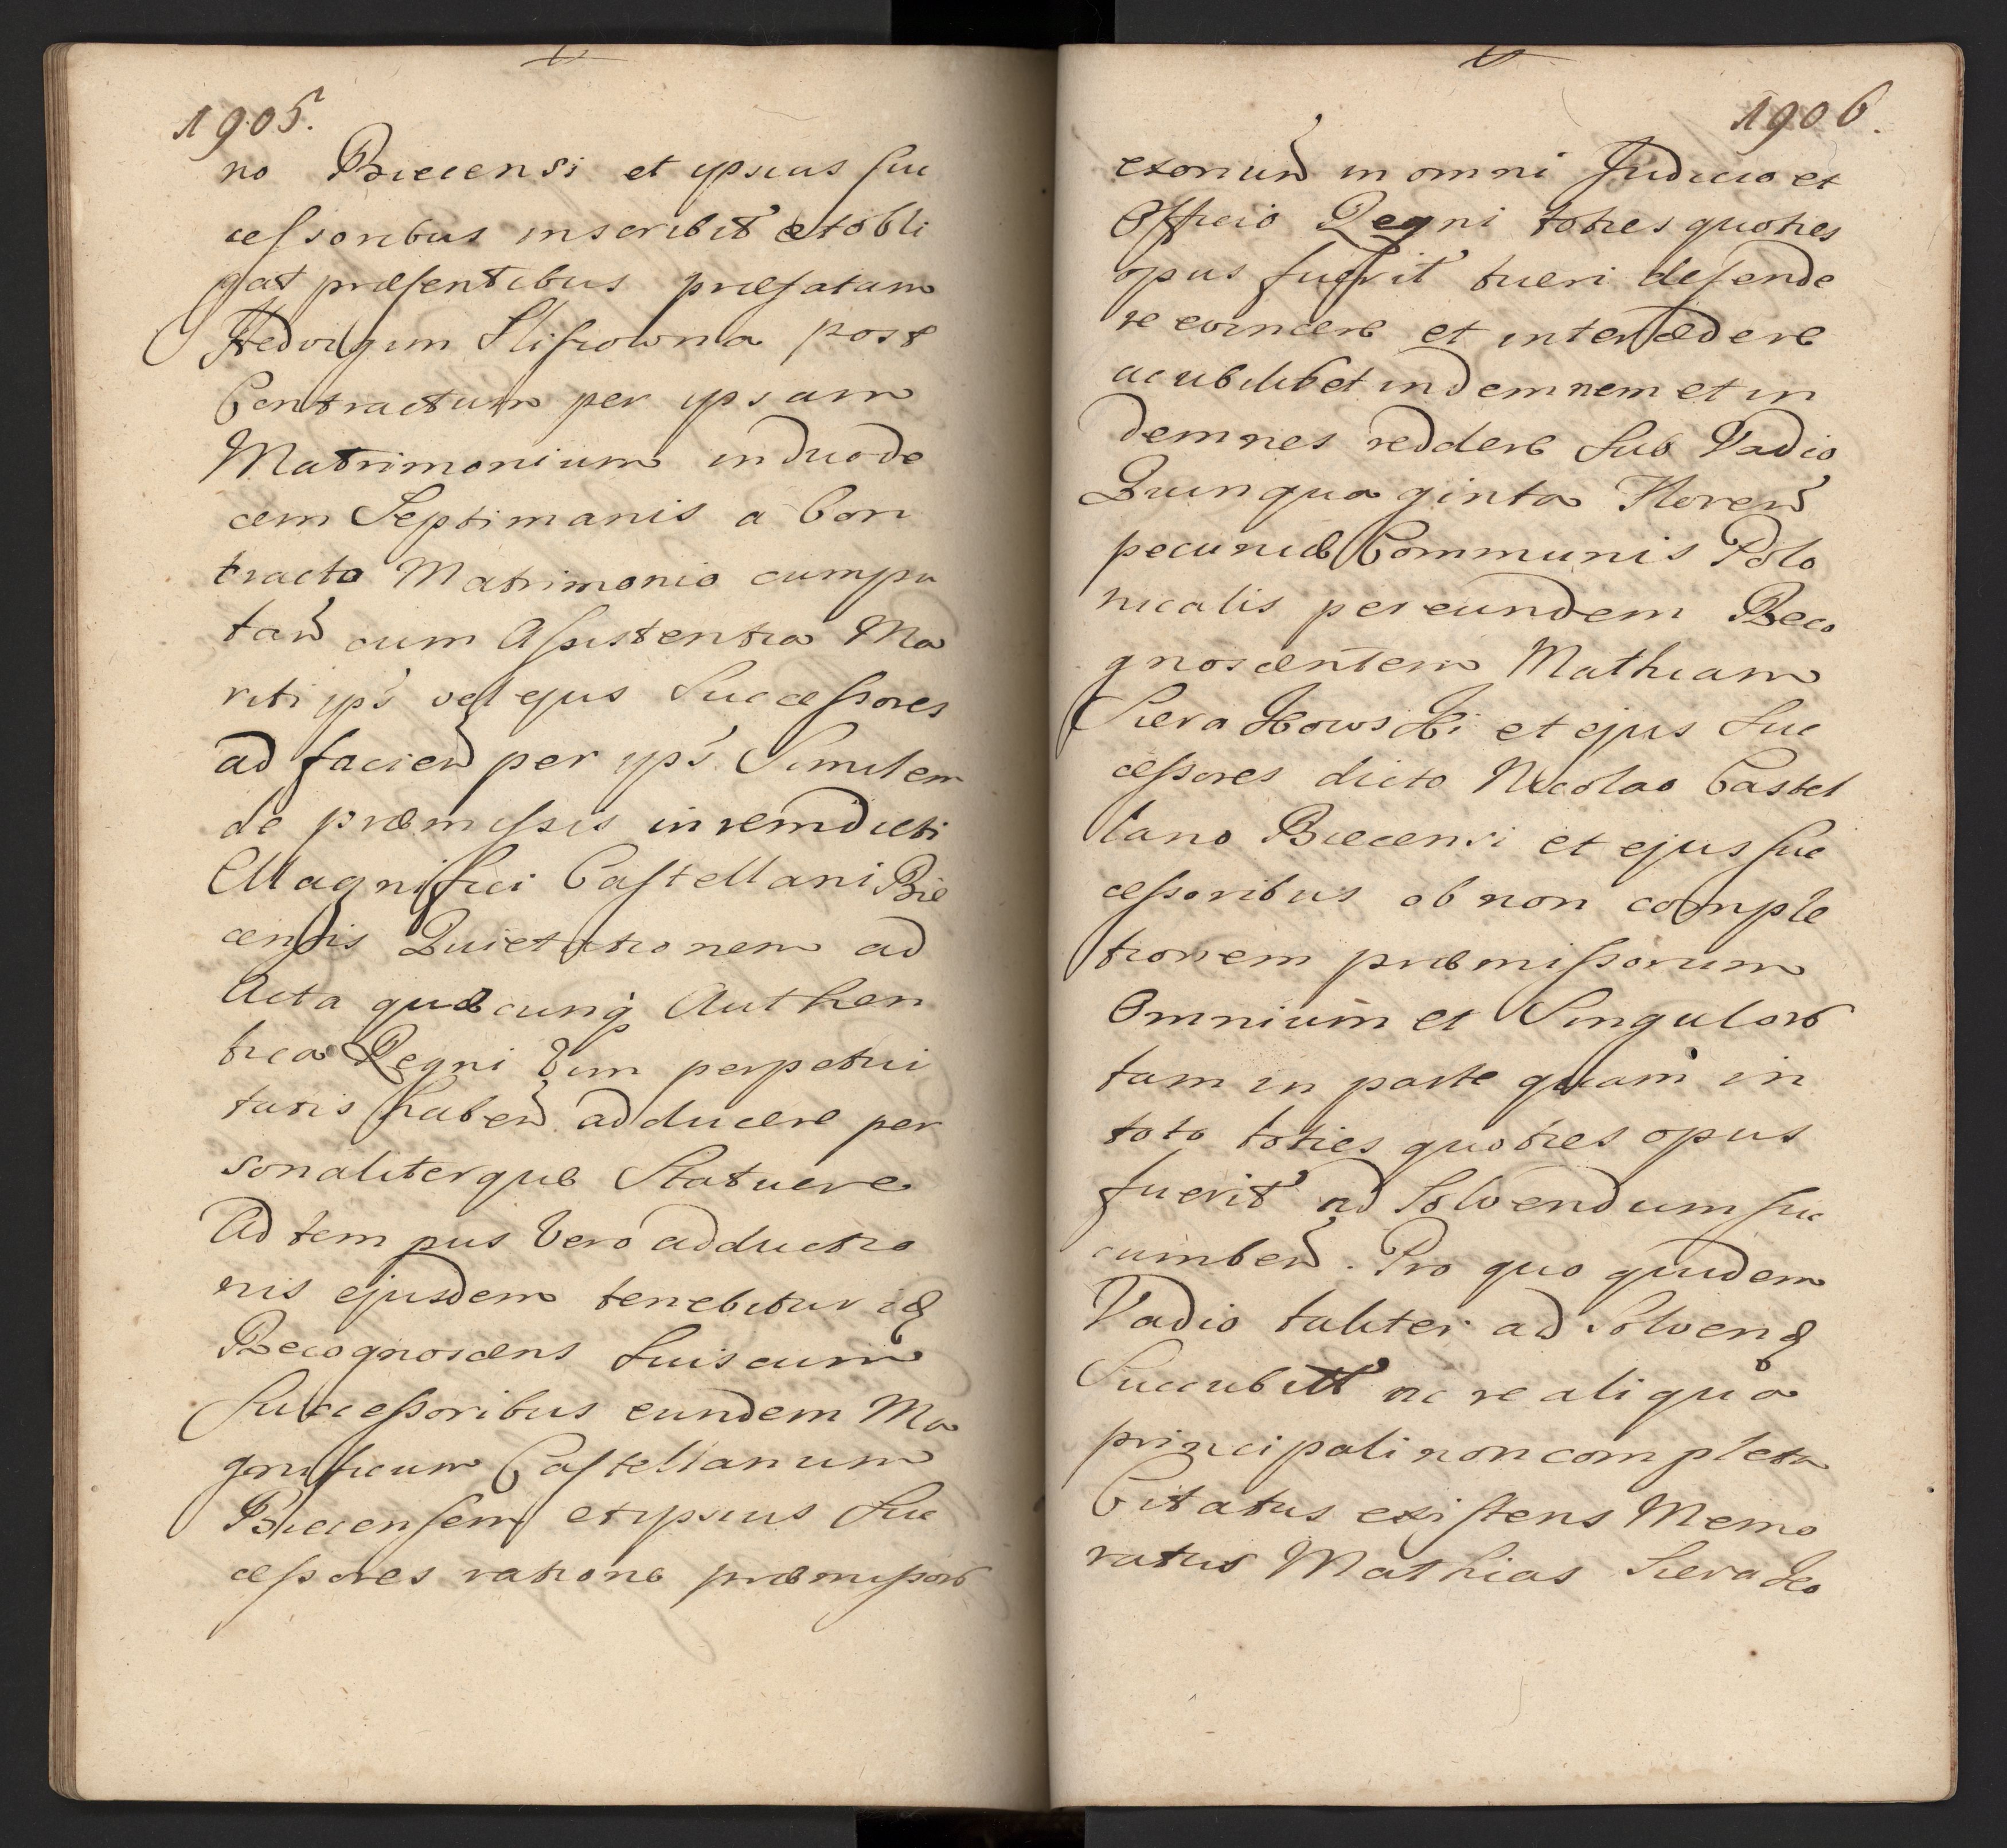 1905.
no Biecensi et ipsius suc
cessoribus inscribit et obli
gat præsentibus præfatam
Hedvigim Slisiowna post
Contractum per ipsam
Matrimonium in duode
cem Septimanis a Con
tracto Matrimonio cumpu
tan̄ cum Assistentia Ma
riti ips̄ vel ejus Successores
ad facien̄ per ips̄ Similem
de præmissis in rem dicti
Magnifici Castellani Bie
censis Quietationem ad
Acta quæcunq̨ Authen
tica Regni Vim perpetui
tatis haben̄ adducere per
sonaliterque Statuere
Ad tempus Vero adductio
nis ejusdem tenebitur id
Recognoscens Suis cum
Successoribus eundem Ma
gnificum Castellanum
Biecensem et ipsius Suc
cessores ratione præmissor
1906.
exoriun̄ in omni Judicio et
Officio Regni toties quoties
opus fuerit tueri defende
re evincere et intercedere
ac ubilibet indemnem et in
demnes reddere Sub Vadio
Quinquaginta Floren̄
pecuniæ Communis Polo
nicalis per eundem Reco
gnoscentem Mathiam
Sierakowski et ejus Suc
cessores dicto Nicolao Castel
lano Biecensi et ejus Suc
cessoribus ob non comple
tionem præmissorum
Omnium et Singulor
tam in parte quam in
toto toties quoties opus
fuerit ad Solvendum suc
cumben̄. Pro quo quidem
Vadio taliter ad Solvend
Succubitt ac re aliqua
principali non completa
Citatus existens Memo
ratus Mathias Sierako